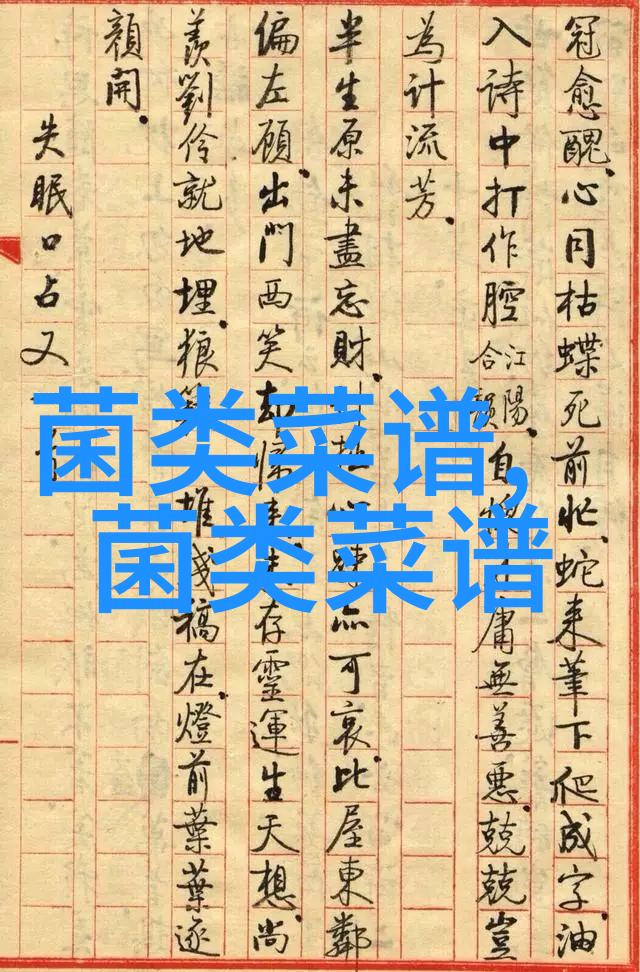 冠愈醜。心同枯蝶死前忙。蛇来筆下爬成字。油
入詩中打作腔。江陽合韻。自愧庸無善惡。兢兢豈
為計流芳。
半生原未盡忘財。亦可哀。比屋東鄰
偏左顧。出門西笑却存靈運生天想。尚
羨劉伶就地埋。狼在。燈前葉葉逐
顏開。
失眠口占又
菌类菜谱,
菌类菜谱